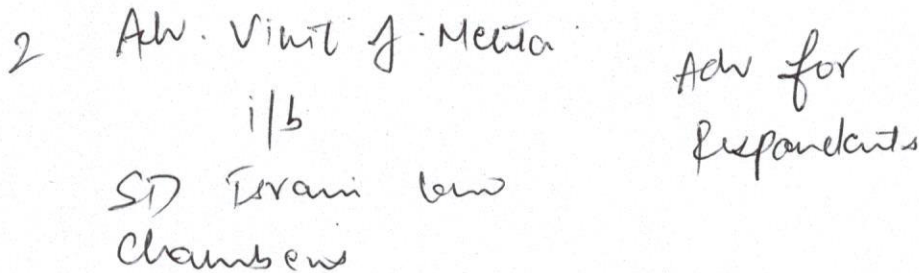 2 Adv. Vinit J. Mehta
i/b
SD Israni Law
Chambers
Adv for
Respondants